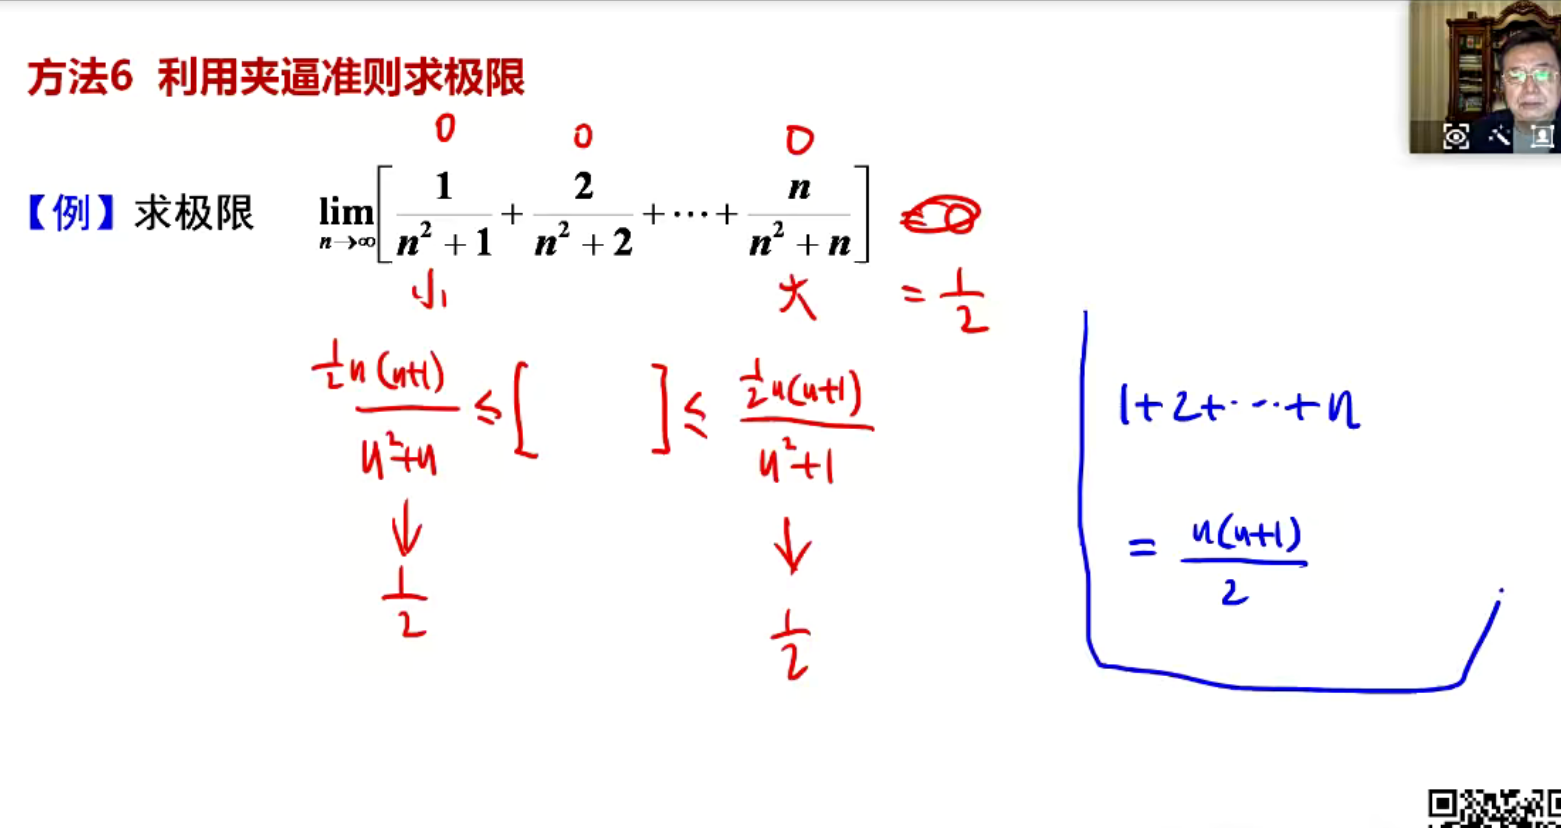 方法6 利用夹逼准则求极限
0 0 0
【例】求极限 lim n→∞ [ 1/(n²+1) + 2/(n²+2) + ⋯ + n/(n²+n) ]
小 大 = 1/2
½n(n+1)/(n²+n) ≤ [ ] ≤ ½n(n+1)/(n²+1)
↓ ↓
1/2 1/2
1+2+⋯+n
= n(n+1)/2